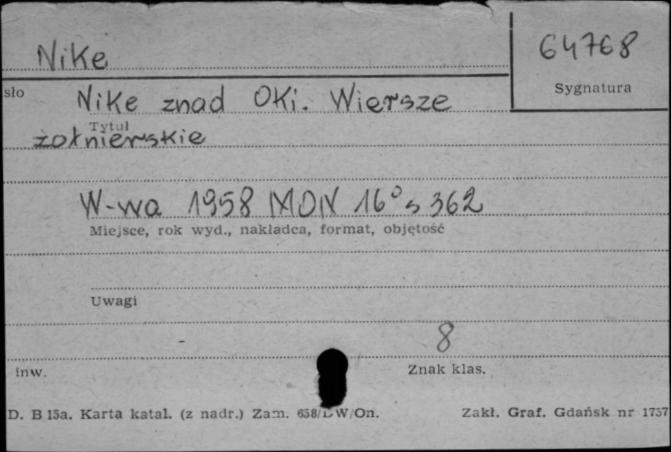 Nike
64768
Sygnatura
sło
Nike znad Oki. Wiersze
Tytuł
żołnierskie
W-wa 1958 MON 16° s 362
Miejsce, rok wyd., nakładca, format, objętość
Uwagi
8
inw.
Znak klas.
D. B 15a. Karta katal. (z nadr.) Zam. 658/DW/On.
Zakł. Graf. Gdańsk nr 1757